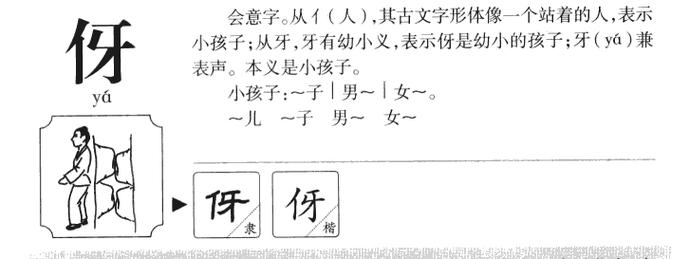 伢
yá
会意字。从亻(人),其古文字形体像一个站着的人,表示
小孩子;从牙,牙有幼小义,表示伢是幼小的孩子;牙(yá)兼
表声。本义是小孩子。
小孩子:～子|男～|女～。
～儿 ～子 男～ 女～
伢 隶
伢 楷